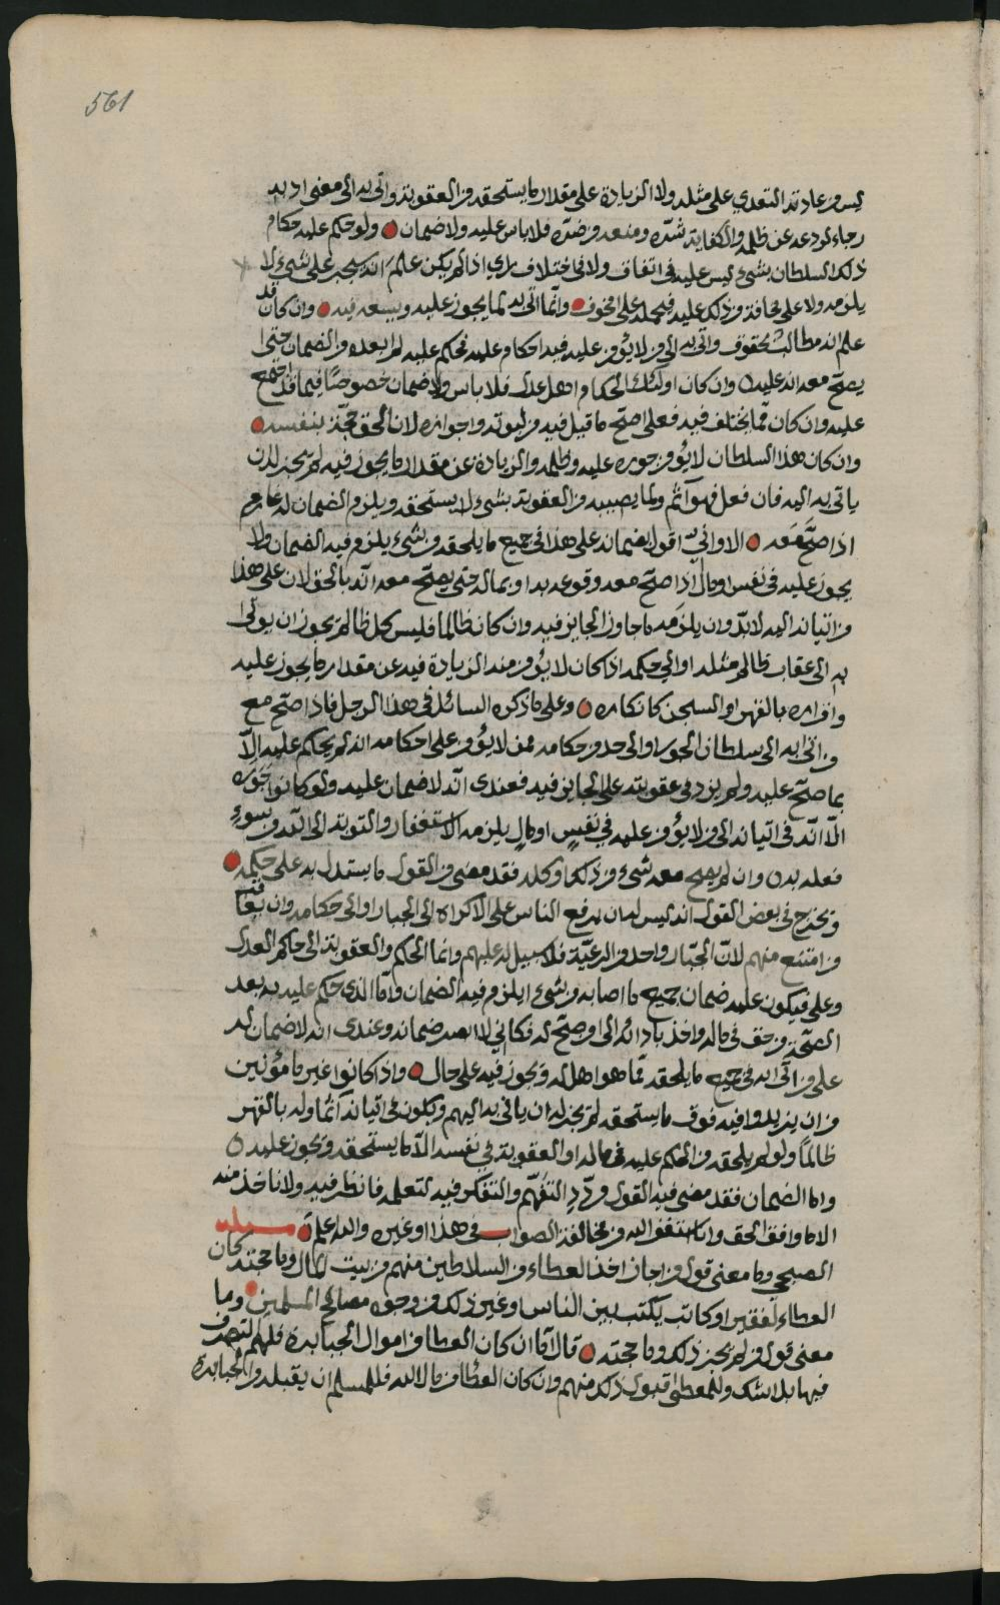 561
ليس من عادته التعدي على مثله ولا الزيادة على مقدار ما يستحقه من العقوبة واتى به الى معنى ادبه
رجاء لردعه عن ظلمه والكفاية شره ومنعه من ضره فلا باس عليه ولا ضمان ولو حكم عليه حكام
ذلك السلطان بشيء ليس عليه في اتفاق ولا في اختلاف براي اذا لم يكن علم انه يجبر على شيء لا
يلزمه ولا على مخافة من ذلك عليه فيحمله على الخوف وانما اتى به لما يجوز عليه ويسعه فيه وان كان قد
علم انه مطالب بحقوق واتى به الى من لا يؤمن عليه فيه احكام عليه فحكم عليه لم ابعده من الضمان حتى
يصح معه انه عليه وان كان اولئك الحكام اهل عدل فلا باس ولا ضمان خصوصا فيما قد اجمع
عليه وان كان مما يختلف فيه فعلى اصح ما قيل فيه من ثبوته واجوازه لان الحق حجة بنفسه
وان كان هذا السلطان لا يؤمن جوره عليه وظلمه والزيادة عن مقدار ما يجوز فيه لم يجز لمن
ياتي به اليه فان فعل فهو آثم ولما يصيبه من العقوبة بشيء لا يستحقه ويلزم الضمان له غارم
اذا صح معه الا واني اقول بضمانه على هذا في جميع ما يلحقه من شيء يلزم فيه الضمان ولا
يجوز عليه في نفس او مال اذا صح معه وقوعه به او بماله حتى يصح معه انه بالحق لان على هذا
من اتيانه اليه لا بد وان يلزمه ما جاوز الجايز فيه وان كان ظالما فليس كل ظالم يجوز ان يولى
به الى عقاب ظالم مثله او الى حكمه اذا كان لا يؤمن منه الزيادة فيه عن مقدار ما يجوز عليه
واقراره بالقهر او السجن كانكاره وعلى ما ذكره السائل في هذا الرجل فاذا صح مع
من اتى به الى سلطان الجور او الى احد من حكامه ممن لا يؤمن على احكامه انه لم يحكم عليه الا
بما صح عليه ولم يزد في عقوبته على الجايز فيه فعندي انه لا ضمان عليه ولو كانوا جوره
الا انه في اتيانه الى من لا يؤمن عليه في نفس او مال يلزمه الاستغفار والتوبة الى الله من سوء
فعله به وان لم يصح معه شيء من ذلك وكله فقد مضى من القول ما يستدل به على حكمه
ويخرج في بعض القول انه ليس له ان يرفع الناس على الاكراه الى الجبار او الى حكامه وان بغا
من امتنع منهم لان الجبار واحد من الرعية فلا سبيل له عليهم وانما الحكم والعقوبة الى حاكم العدل
وعلى فيكون عليه ضمان جميع ما اصابه من شيء يلزم فيه الضمان واما الذي حكم عليه به بعد
الصحة من حق في ماله واخذ بادائه الى من صح له فكاني لا ابصر ضمانه وعندي انه لا ضمان له
على من اتى به في جميع ما يلحقه مما هو اهل له ويجوز فيه على حال واذا كانوا غير مامونين
من ان يزيدوا فيه فوق ما يستحقه لم يجز له ان ياتي به اليهم ويكون في اتيانه آثما وله بالقهر
ظالما ولو لم يلحقه من الحكم عليه في ماله او العقوبة في نفسه الا ما يستحقه ويجوز عليه
واما الضمان فقد مضى فيه القول فردد التفهم والتفكر فيه لتعلمه فانظر فيه ولا تاخذ منه
الا ما وافق الحق وانا استغفر الله من مخالفة الصواب في هذا او غيره والله اعلم مسئله
الصبحي وما معنى قول من اجاز اخذ العطاء من السلاطين منهم من بيت المال وما حجته كان
العطاء لفقير او كاتب يكتب بين الناس او غير ذلك من وجوه مصالح المسلمين وما
معنى قول من لم يجز ذلك وما حجته قال اما ان كان العطا من اموال الجبابرة فلهم التصرف
فيها بلا شك وللمعطى قبول ذلك منهم وان كان العطا من مال الله فللمسلم ان يقبله من الجبابرة